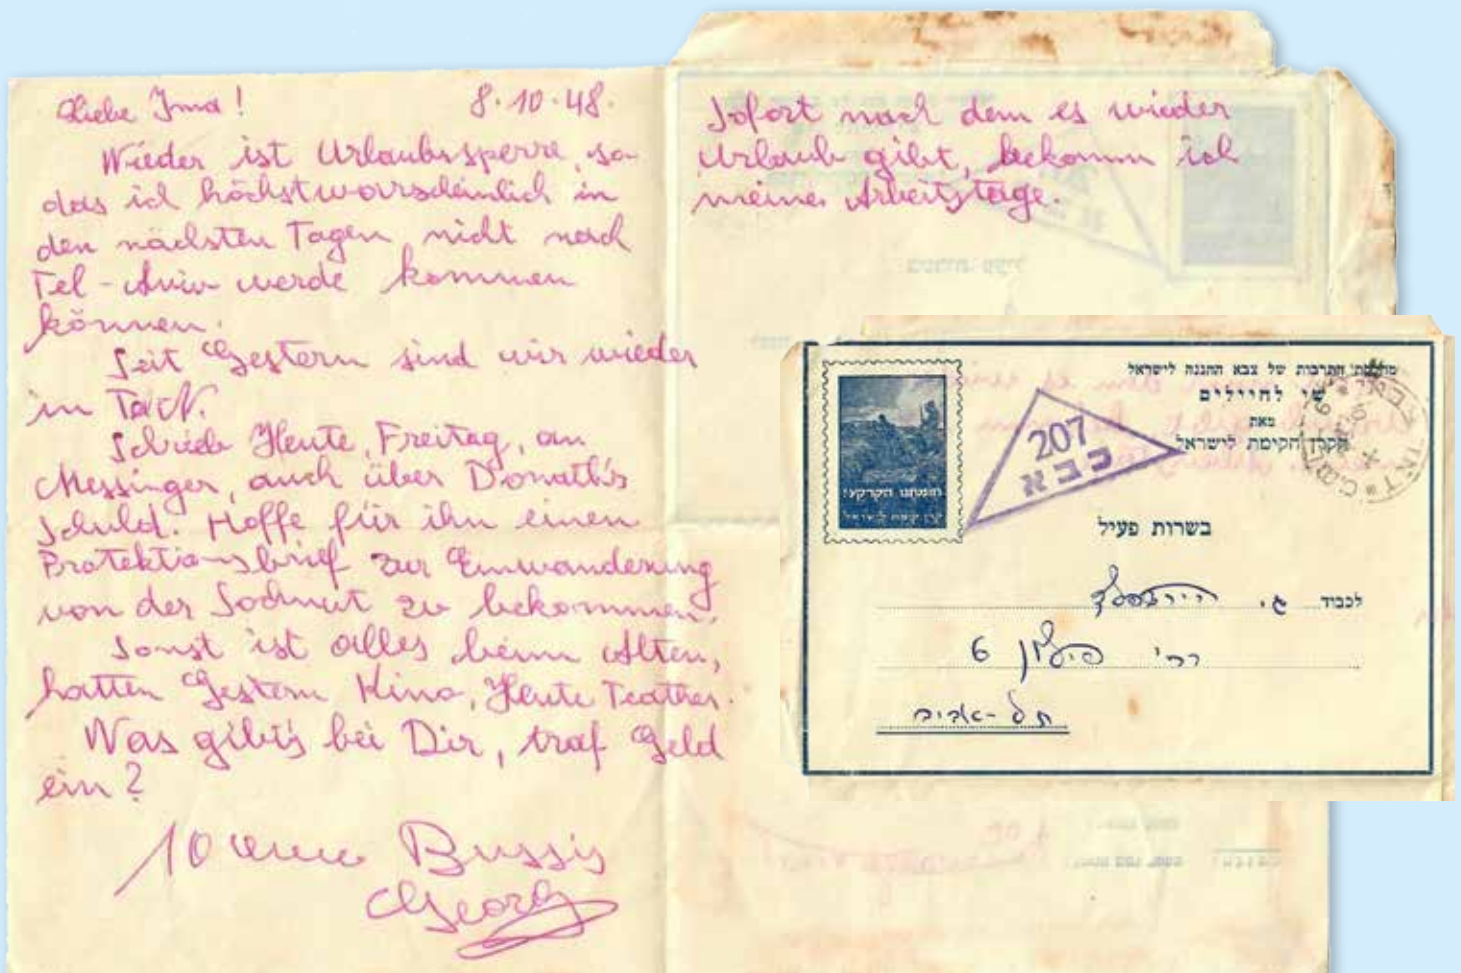 Liebe Ima! 8.10.48.
Wieder ist Urlaubssperre, so
das ich höchstwarscheinlich in
den nächsten Tagen nicht nach
Tel-Aviv werde kommen
können.
Seit Gestern sind wir wieder
in
Schrieb Heute, Freitag, an
Messinger, auch über Donath's
Schuld. Hoffe für ihn einen
Protektionsbrief zur Einwanderung
von der Sochnut zu bekommen.
Sonst ist alles beim Alten,
hatten Gestern Kino, Heute Teater.
Was gibt's bei Dir, traf Geld
ein?
Bussis
Georg
Sofort nach dem es wieder
Urlaub gibt, bekomm ich
meine Arbeitstage.
מחלקת התרבות של צבא ההגנה לישראל
שי לחיילים
מאת
הקרן הקימת לישראל
207
כבא
חומתנו הקרקע!
קרן קימת לישראל
בשרות פעיל
לכבוד גי הירשפלד
רח' 6
תל-אביב